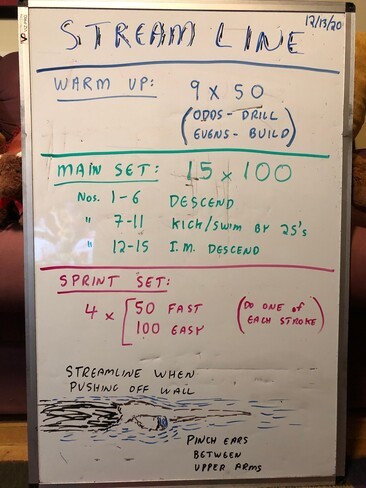 12/13/20
STREAMLINE
WARM UP: 9 x 50
(ODDS - DRILL
EVENS - BUILD)
MAIN SET: 15 x 100
Nos. 1-6 DESCEND
" 7-11 KICK/SWIM BY 25's
" 12-15 I.M. DESCEND
SPRINT SET:
4 x [50 FAST
100 EASY
(DO ONE of
EACH STROKE)
STREAMLINE WHEN
PUSHING OFF WALL
PINCH EARS
BETWEEN
UPPER ARMS